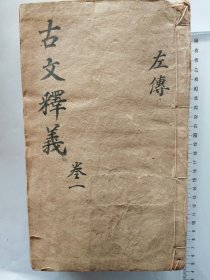 左傳
古文釋義
卷一